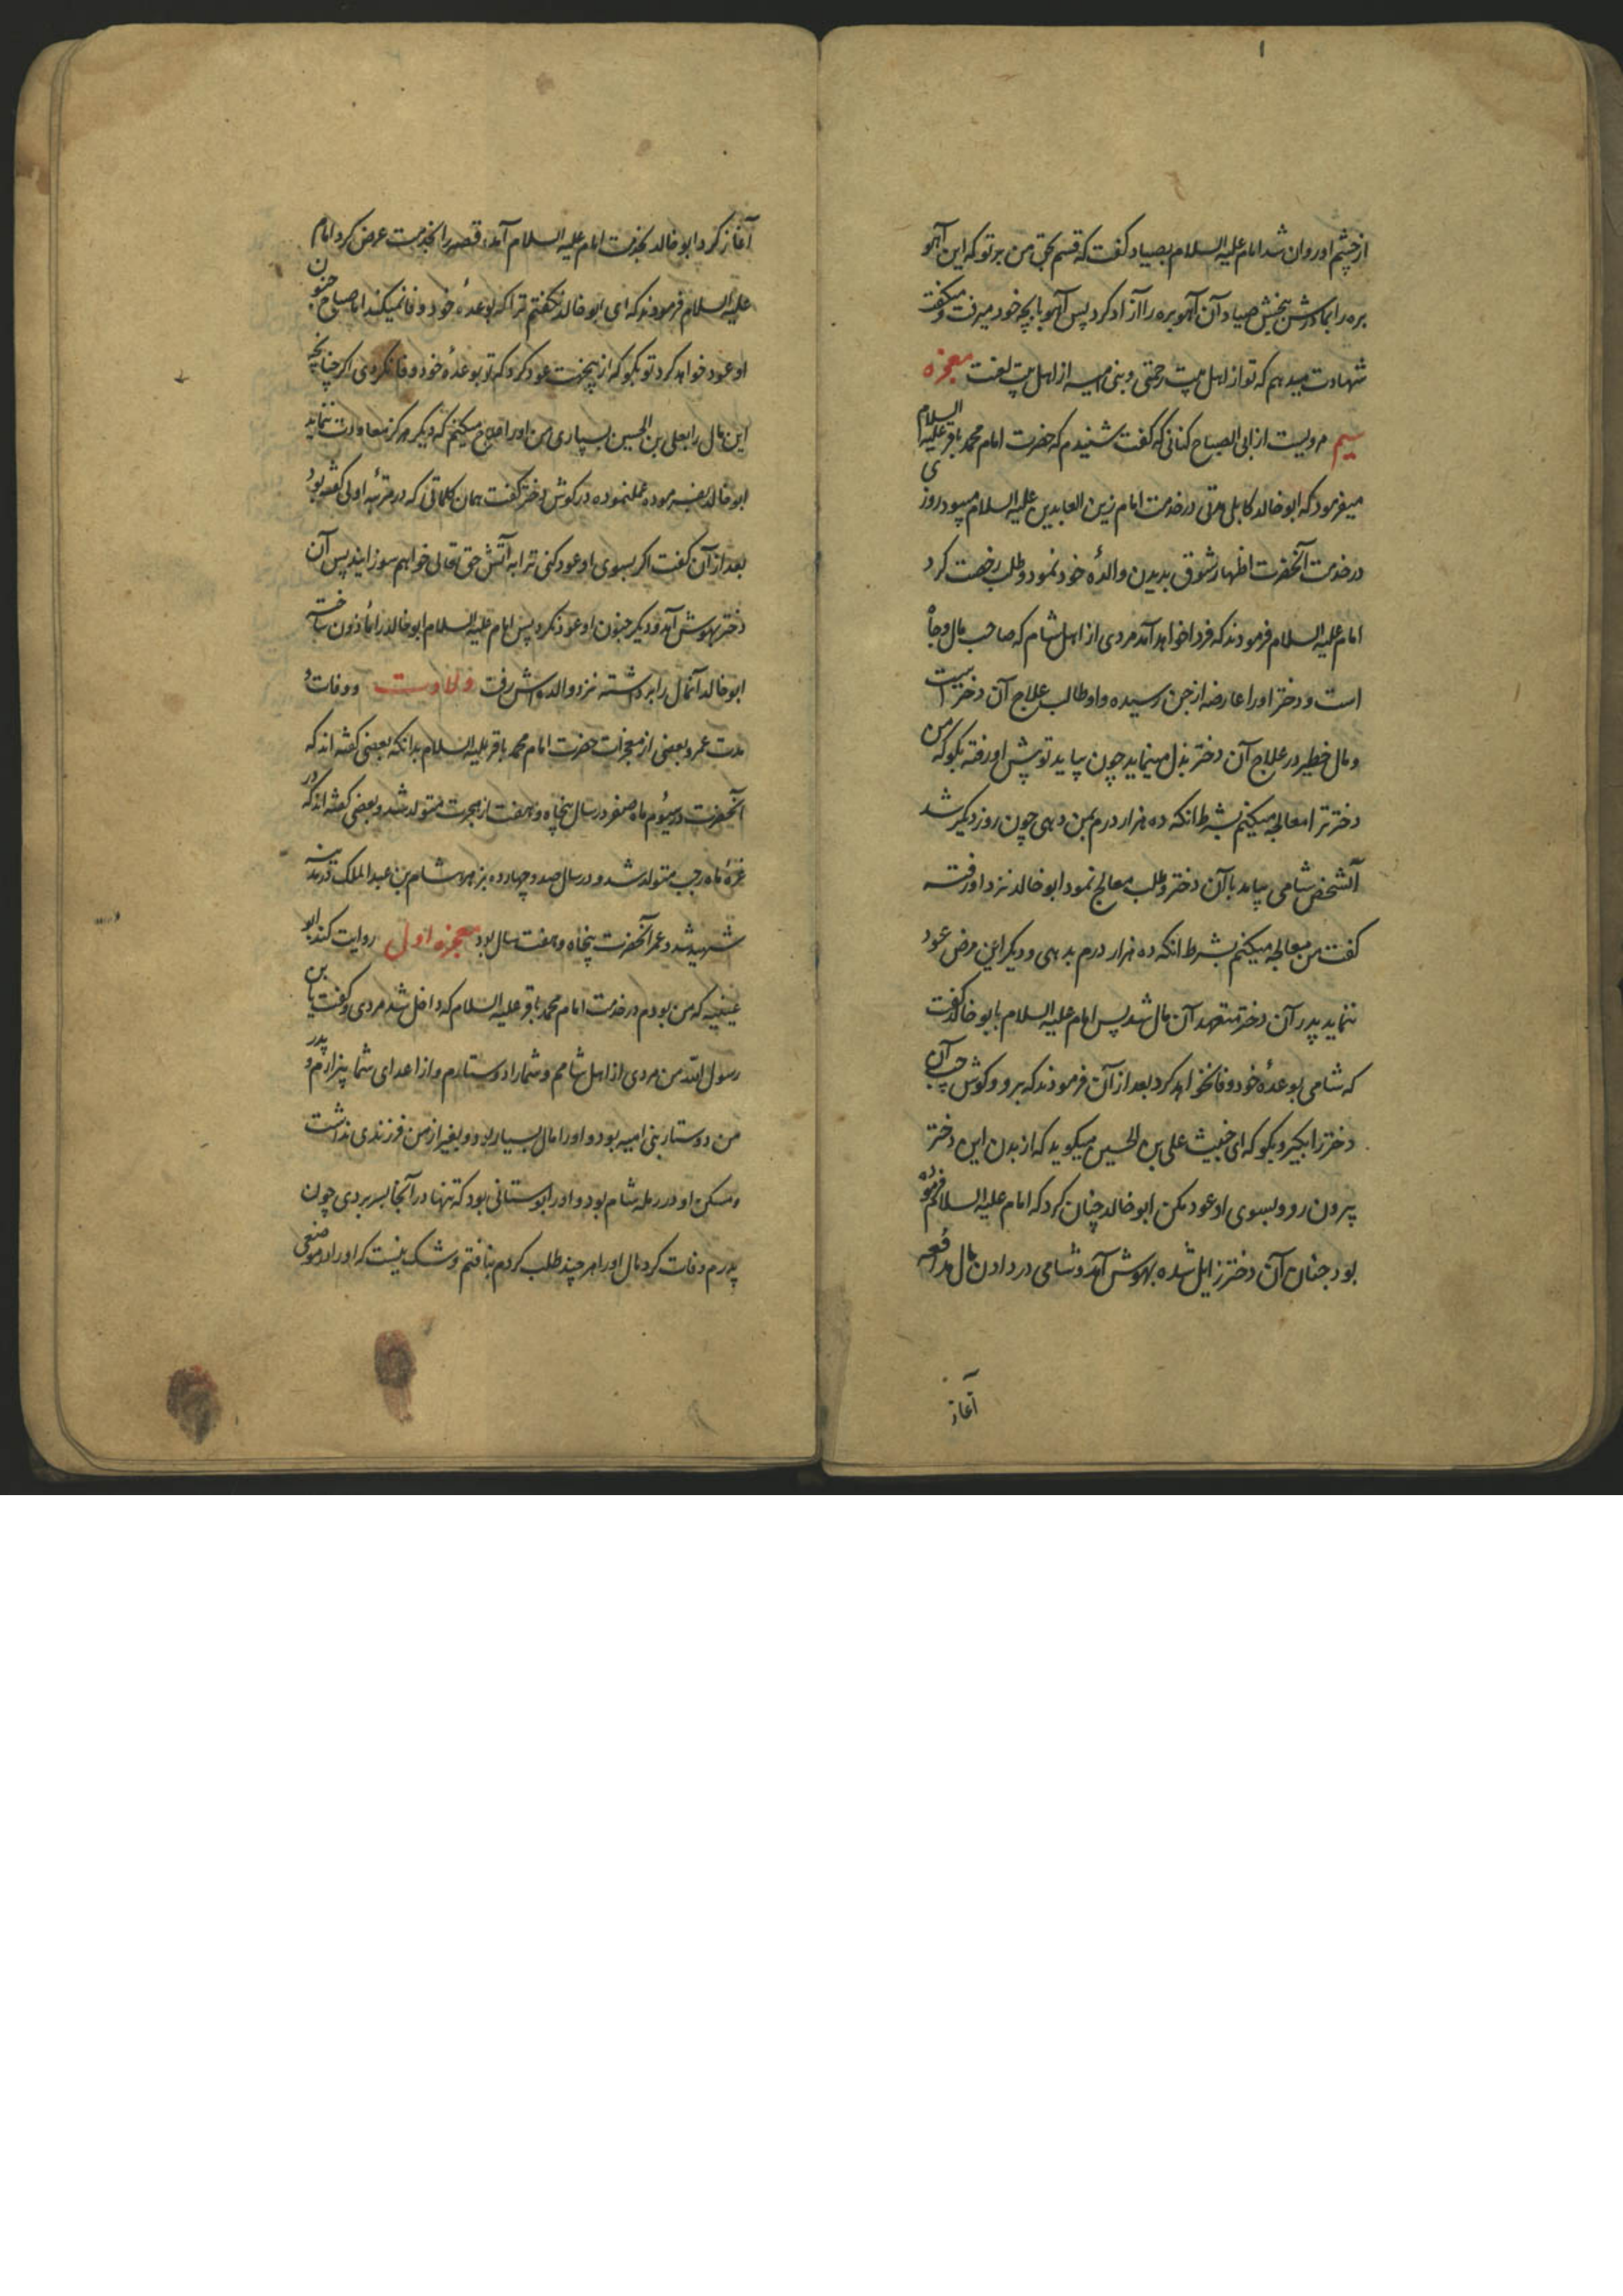 ۱
از چشم او روان شد امام علیه السلام بصیاد گفت که قسم بحق من بر تو که این آهو
بره را بمادرش ببخش صیاد آن آهو بره را آزاد کرد پس آهو با بچه خود میرفت و میگفت
شهادت میدهم که تو از اهل بیت رحمتی و بنی امیه از اهل بیت لعنت معجزه
سیم مرویست از ابی الصباح کنانی که گفت شنیدم که حضرت امام محمد باقر علیه السلام
میفرمود که ابو خالد کابلی مدتی در خدمت امام زین العابدین علیه السلام میبود روزی
در خدمت آنحضرت اظهار شوق بدیدن والدهٔ خود نمود و طلب رخصت کرد
امام علیه السلام فرمودند که فردا خواهد آمد مردی از اهل شام که صاحب مال و جاه
است و دختر او را عارضه از جن رسیده و او طالب علاج آن دختر است
و مال خطیر در علاج آن دختر بذل مینماید چون بیاید تو پیش او رفته بگو که من
دختر ترا معالجه میکنم بشرط انکه ده هزار درم بمن دهی چون روز دیگر شد
آنشخص شامی بیامد با آن دختر و طلب معالج نمود ابو خالد نزد او رفته
گفت من معالجه میکنم بشرط انکه ده هزار درم بدهی و دیگر این مرض عود
ننماید پدر آن دختر متعهد آن مال شد پس امام علیه السلام بابو خالد گفت
که شامی بوعدهٔ خود وفا نخواهد کرد بعد از آن فرمودند که برو و گوش چپ آن
دختر را بگیر و بگو که ای خبیث علی بن الحسین میگوید که از بدن این دختر
بیرون رو و بسوی او عود مکن ابو خالد چنان کرد که امام علیه السلام فرموده
بود جنان آن دختر زایل شده بهوش آمد و شامی در دادن مال مدافعه
آغاز
آغاز کرد ابو خالد بخدمت امام علیه السلام آمده قصه را بخدمت عرض کرد امام
علیه السلام فرمودند که ای ابو خالد نگفتم ترا که بوعدهٔ خود وفا نمیکند اما صباح جنون
او عود خواهد کرد تو بگو که از اینجهت عود کرد که تو بوعدهٔ خود وفا نکردی اگر چنانچه
این مال را بعلی بن الحسین بسپاری من او را علاج میکنم که دیگر هرگز معاودت ننماید
ابو خالد بفرموده عمل نموده در گوش دختر گفت همان کلماتی که در مرتبه اولی گفته بود
بعد از آن گفت اگر بسوی او عود کنی ترا به آتش حق تعالی خواهم سوزانید پس آن
دختر بهوش آمد و دیگر جنون او عود نکرد پس امام علیه السلام ابو خالد را مأذون ساخته
ابو خالد آنمال را برداشته نزد والده اش رفت ولادت و وفات و
مدت عمر و بعضی از معجزات حضرت امام محمد باقر علیه السلام بدانکه بعضی گفته اند که
آنحضرت در سیوم ماه صفر در سال پنجاه و هفت از هجرت متولد شد و بعضی گفته اند که در
غرهٔ ماه رجب متولد شد و در سال صد و چهارده بزهر هشام بن عبد الملک در مدینه
شهید شد و عمر آنحضرت پنجاه و هفت سال بود معجزه اول روایت کند ابو
عیینه که من بودم در خدمت امام محمد باقر علیه السلام که داخل شد مردی و گفت یا بن
رسول الله من مردی از اهل شامم و شما را دوستدارم و از اعدای شما بیزارم و پدر
من دوستدار بنی امیه بود و او را مال بسیار بود و بغیر از من فرزندی نداشت
و مسکن او در رمله شام بود و او را بوستانی بود که تنها در آنجا بسر بردی چون
پدرم وفات کرد مال او را هر چند طلب کردم نیافتم و شک نیست که او را در موضعی